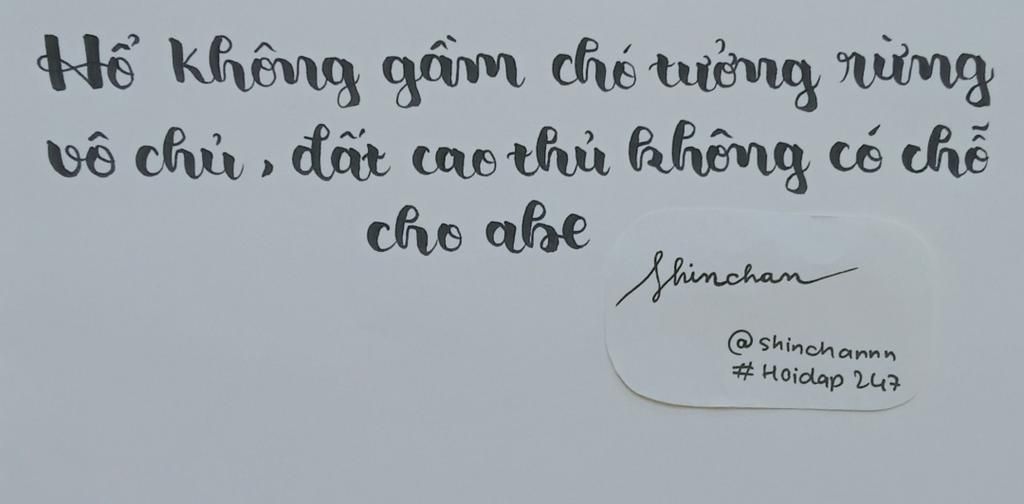 Hổ không gầm chó tưởng rừng
vô chủ, đất cao thủ không có chỗ
cho abe
Shinchan
@shinchannn
# Hoidap 247